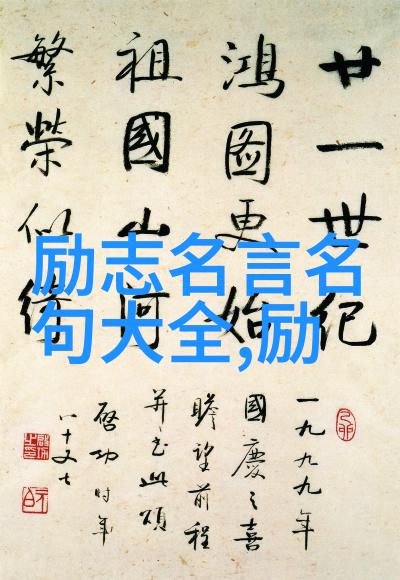 廿一世紀
鴻圖更始
祖國山河
繁榮似綺
一九九九年
國慶之喜
瞻望前程
并書此頌
啓功時年
八十又七
励志名言名
句大全,励